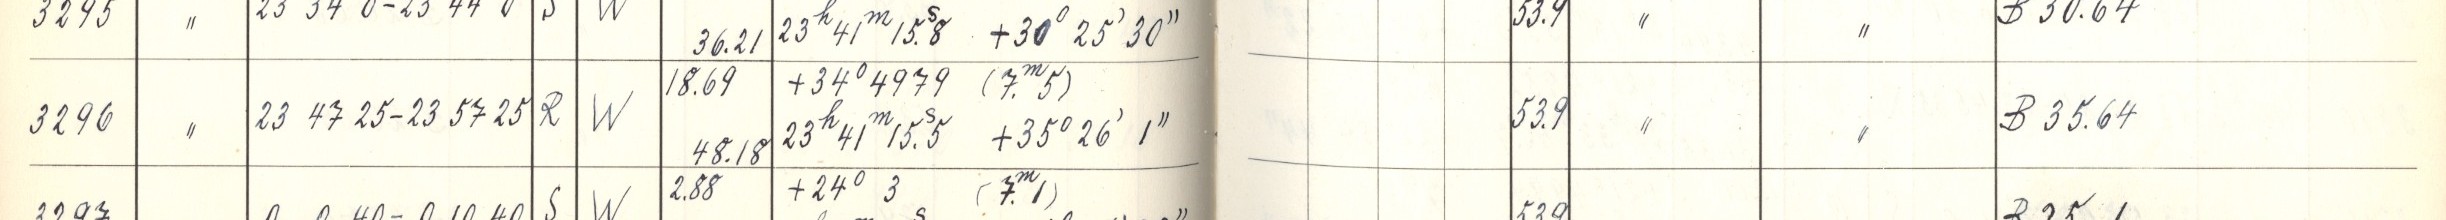 3295 " 23 34 0-23 44 0 S W 53.9 " " B 30.64
36.21 23h 41m 15.s8 +30° 25' 30"
18.69 +34° 4979 (7.m5)
3296 " 23 47 25-23 57 25 R W 23h 41m 15.s5 +35° 26' 1" 53.9 " " B 35.64
48.18
2.88 +24° 3 (7.m1)
3297 0 0 40- 0 10 40 S W 53.9